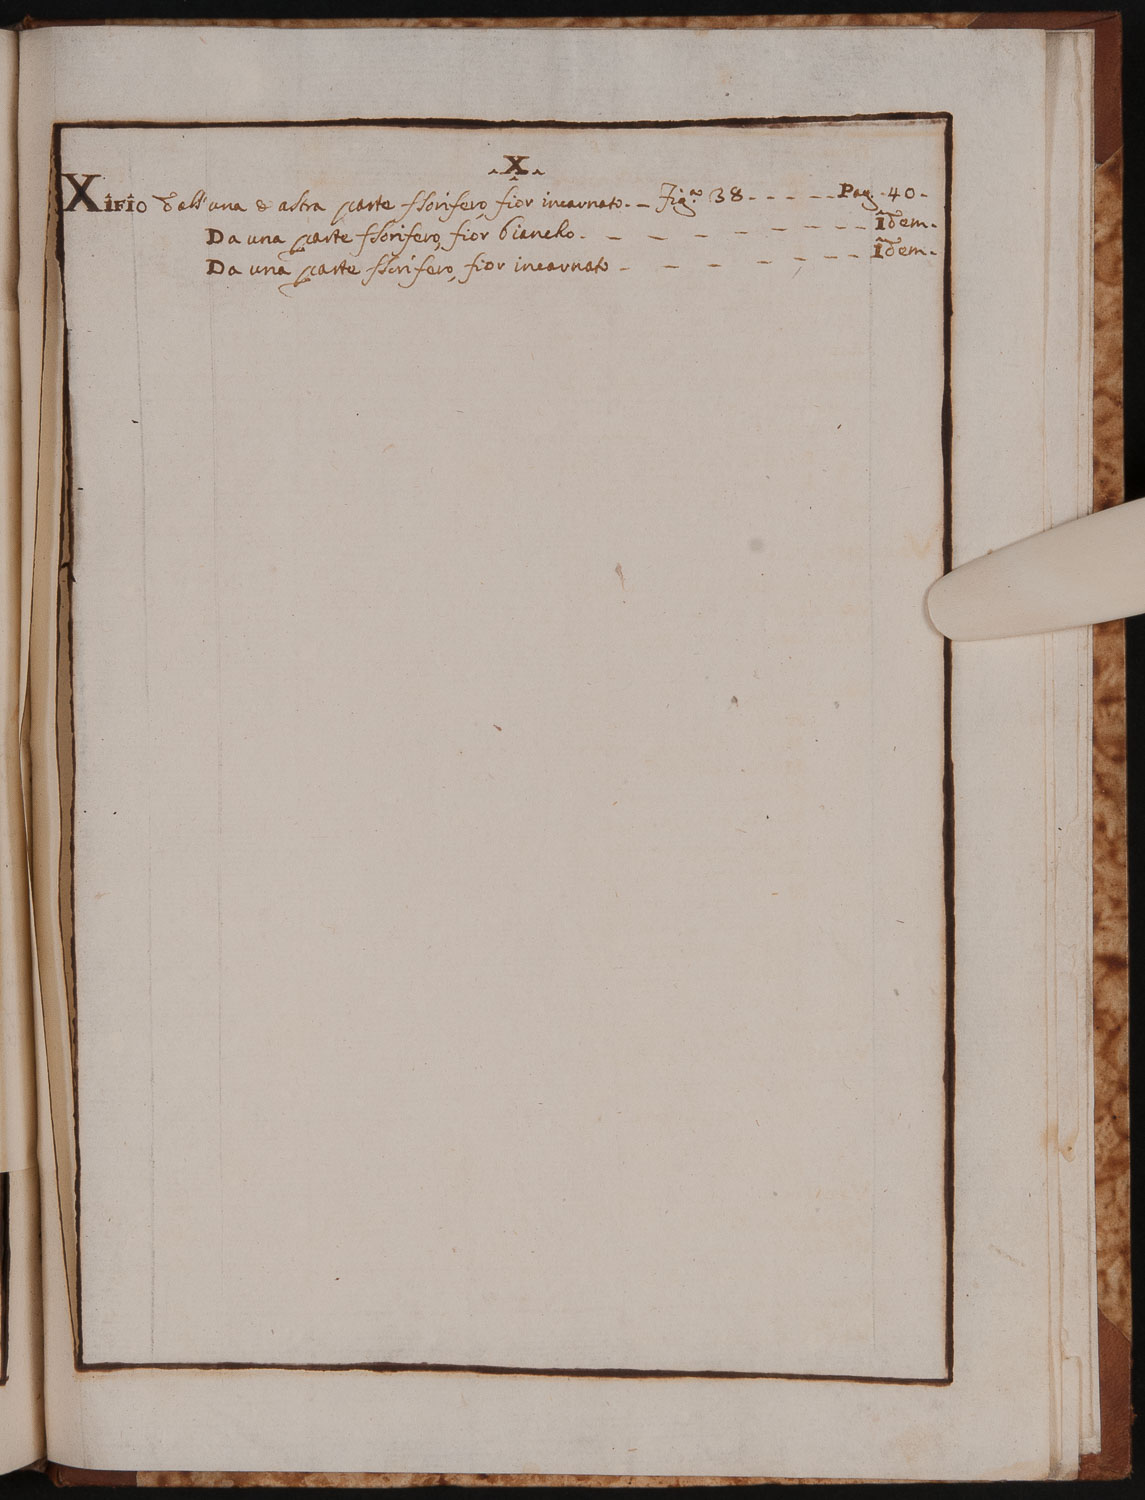 .X.
Xifio dall'una & altra parte florifero, fior incarnato. -- Fig.ª 38 - - - - -- Pag. 40 -
Da una parte florifero, fior biancho. - - - - - - - - - Idem.
Da una parte florifero, fior incarnato - - - - - - - - Idem.